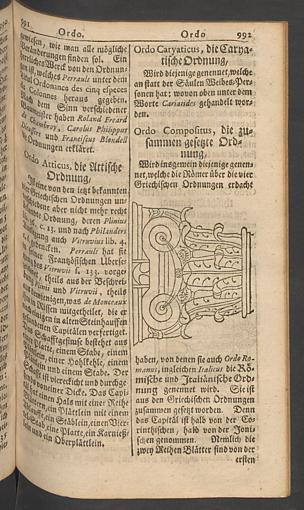 991
Ordo.
gewiesen, wie man alle mögliche
Veränderungen finden soll. Ein
Werck von den Ordnun-
welches Perrault unter dem
Ordonance des cinq especes
de Colonnes heraus gegeben.
dem Sinn verschiedener
haben Roland Freard
de Chambray, Carolus Philippus
Dieussart und Franciscus Blondell
Ordnungen erkläret.
Ordo Atticus, die Attische
Ordnung,
eine von den jetzt bekannten
Griechischen Ordnungen un-
aber nicht mehr recht
Ordnung, deren Plinius
c. 23. und nach Philanders
auch Vitruvius lib. 4.
gedencken. Perrault hat sie
Frantzösischen Uberse-
des Vitruvii f. 133. vorge-
theils aus der Beschrei-
Plinii und Vitruvii, theils
was de Monceaux
mitgetheilet, die er
in alten Steinhauffen
Capitälen verfertiget.
Schafftgesimse bestehet aus
Platte, einem Stabe, einem
einer Hohlkehle, einem
und einem Stabe. Der
ist viereckicht und durchge-
einer Dicke. Das Capi-
einen Hals mit einer Reihe
ein Plättlein mit einem
ein Stäblein, einen Vier-
eine Platte, ein Karnieß-
und ein Oberplättlein.
Ordo
992
Ordo Caryaticus, die Carya-
tische Ordnung,
Wird diejenige genennet, welche
an statt der Säulen Weibes-Per-
sonen hat; wovon oben unter dem
Worte Cariatides gehandelt wor-
den.
Ordo Compositus, die zu-
sammen gesetzte Ord-
nung,
Wird insgemein diejenige genen-
net, welche die Römer über die vier
Griechischen Ordnungen erdacht
haben, von denen sie auch Ordo Ro-
manus, ingleichen Italicus die Rö-
mische und Italiänische Ord-
nung genennet wird. Sie ist
aus den Griechischen Ordnungen
zusammen gesetzt worden. Denn
das Capitäl ist halb von der Co-
rinthischen, halb von der Joni-
schen genommen. Nemlich die
zwey Reihen Blätter sind von der
ersten